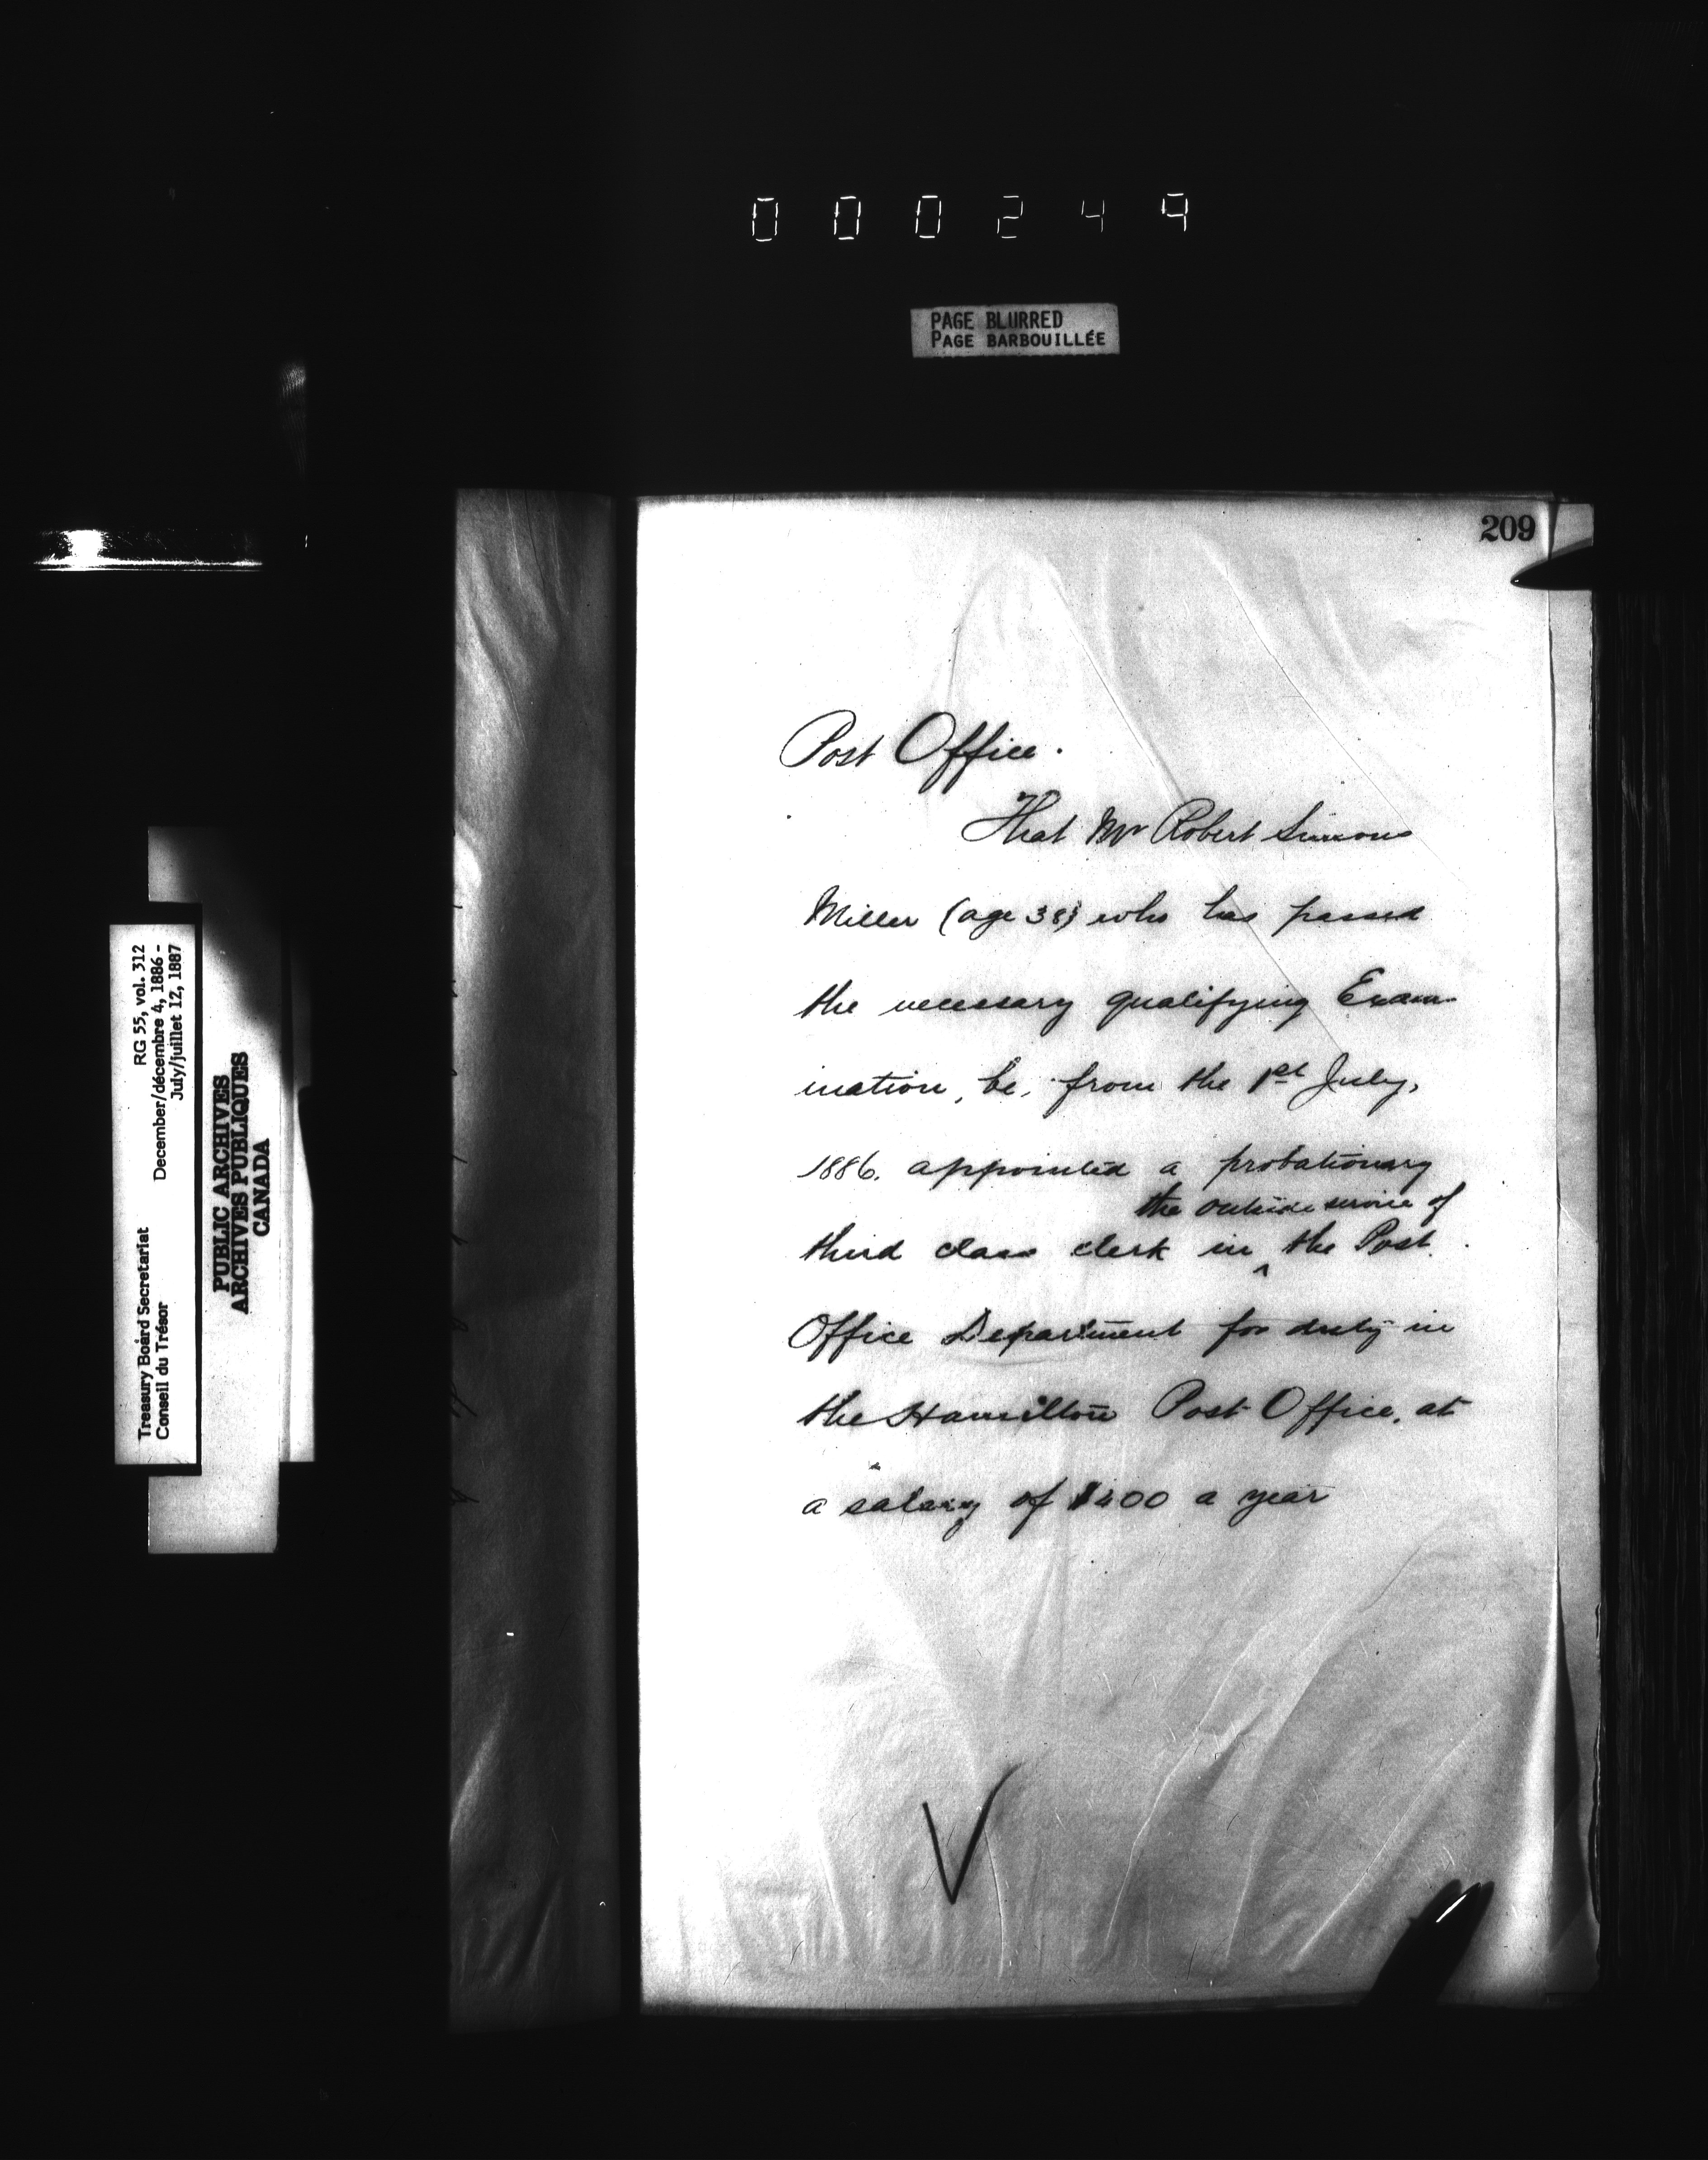 000249
PAGE BLURRED
PAGE BARBOUILLÉE
209
Post Office.
That Mr Robert Simons
Miller (age 38) who has passed
the necessary qualifying Exam-
ination, be, from the 1st July,
1886. appointed a probationary
the outside service of
third class clerk in ^ the Post
Office Department for duty in
the Hamilton Post Office, at
a salary of $400 a year
Treasury Board Secretariat RG 55, vol. 312
Conseil du Trésor December/décembre 4, 1886 -
July/juillet 12, 1887
PUBLIC ARCHIVES
ARCHIVES PUBLIQUES
CANADA